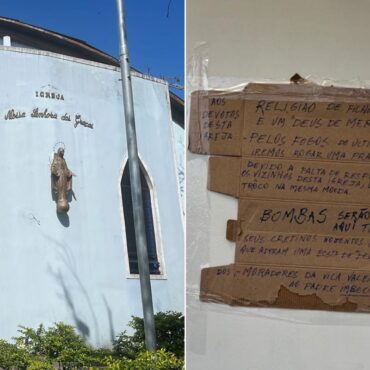 IGREJA
Nossa Senhora das Graças
AOS
DEVOTOS
DESTA
IGREJA.
RELIGIÃO DE FILHO
E UM DEUS DE MER
- PELOS FOGOS DE
IREMOS ROGAR UMA PRA
DEVIDO A FALTA DE RESPE
OS VIZINHOS DESTA IGREJA,
TROCO NA MESMA MOEDA.
BOMBAS SERÃO
AQUI
SEUS CRETINOS NOJENTOS
QUE ADORAM UMA BOSTA DE
DOS:- MORADORES DA VILA VALE
AO PADRE IMBEC